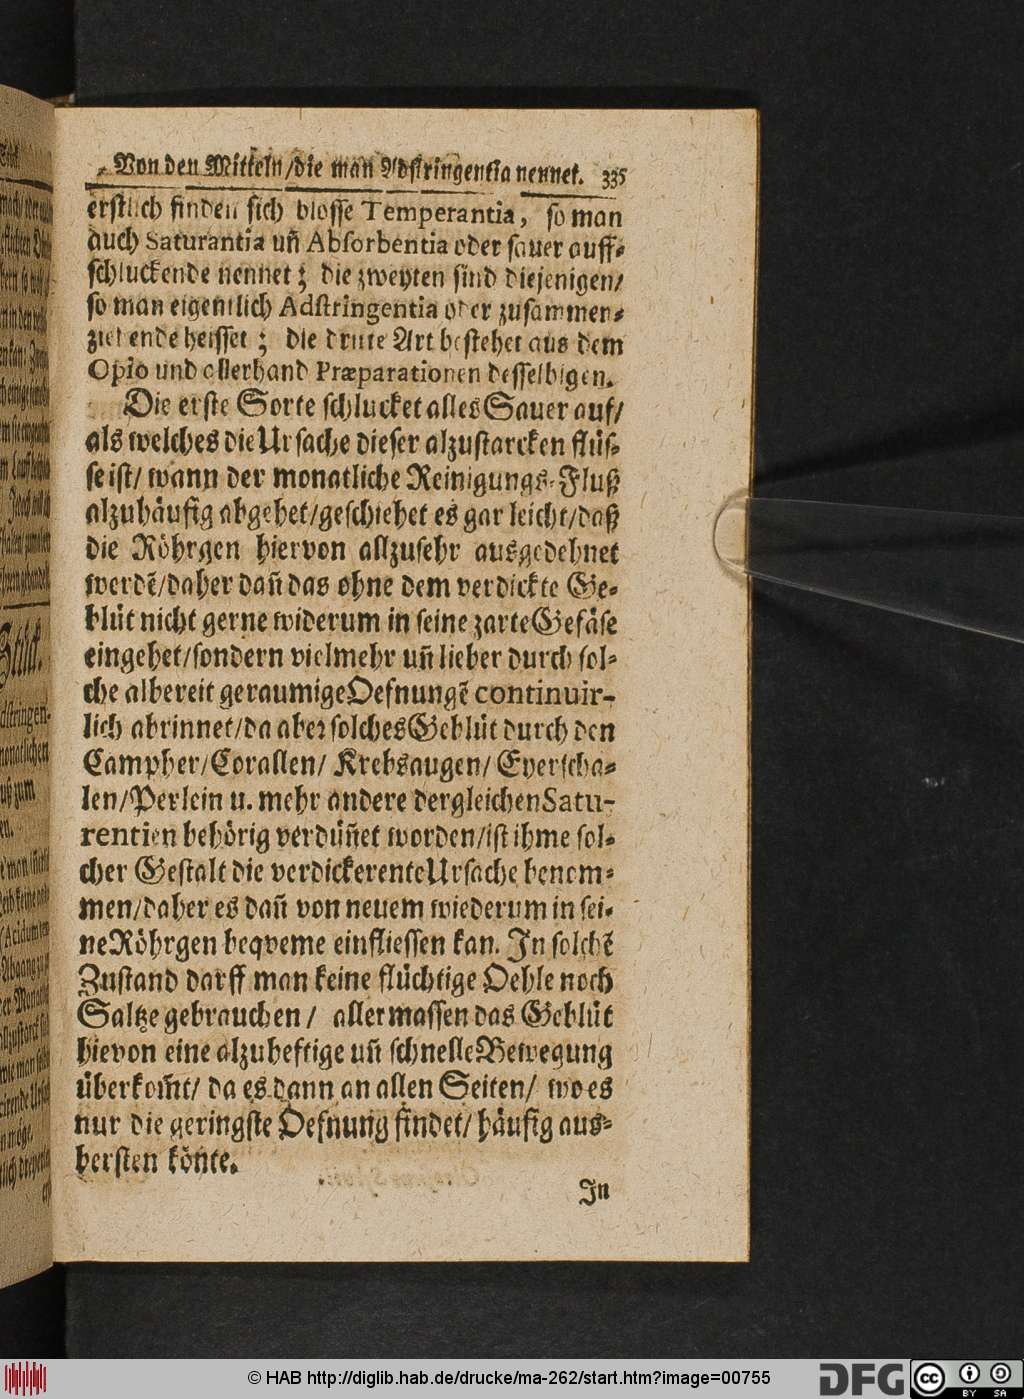 Von den Mitteln/die man Adstringentia nennet. 335
erstlich finden sich blosse Temperantia, so man
auch Saturantia uñ Absorbentia oder sauer auff-
schluckende nennet; die zweyten sind diejenigen/
so man eigentlich Adstringentia oder zusammen-
ziehende heisset; die dritte Art bestehet aus dem
Opio und allerhand Præparationen desselbigen.
Die erste Sorte schlucket alles Sauer auf/
als welches die Ursache dieser alzustarcken flüs-
se ist/ wann der monatliche Reinigungs-Fluß
alzuhäufig abgehet/geschiehet es gar leicht/daß
die Röhrgen hiervon allzusehr ausgedehnet
werdẽ/daher dañ das ohne dem verdickte Ge-
blüt nicht gerne widerum in seine zarte Gefäse
eingehet/sondern vielmehr uñ lieber durch sol-
che albereit geraumige Oefnungẽ continuir-
lich abrinnet/da aber solches Geblüt durch den
Campher/Corallen/ Krebsaugen/ Eyerscha-
len/Perlein u. mehr andere dergleichen Satu-
rentien behörig verdüñet worden/ist ihme sol-
cher Gestalt die verdickerente Ursache benom-
men/daher es dañ von neuem wiederum in sei-
ne Röhrgen beqveme einfliessen kan. In solchẽ
Zustand darff man keine flüchtige Oehle noch
Saltze gebrauchen/ allermassen das Geblüt
hievon eine alzuheftige uñ schnelle Bewegung
überkom̃t/ da es dann an allen Seiten/ wo es
nur die geringste Oefnung findet/ häufig aus-
bersten könte.
In
© HAB http://diglib.hab.de/drucke/ma-262/start.htm?image=00755
DFG
cc BY SA